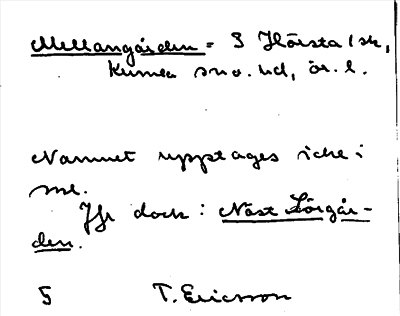 Mellangården = 3 Hörsta 1 sk,
Kumla sn o. hd, ör. l.
Namnet upptages icke i
JÄ.
Jfr dock: Näst Sörgår-
den.
5 T. Ericsson